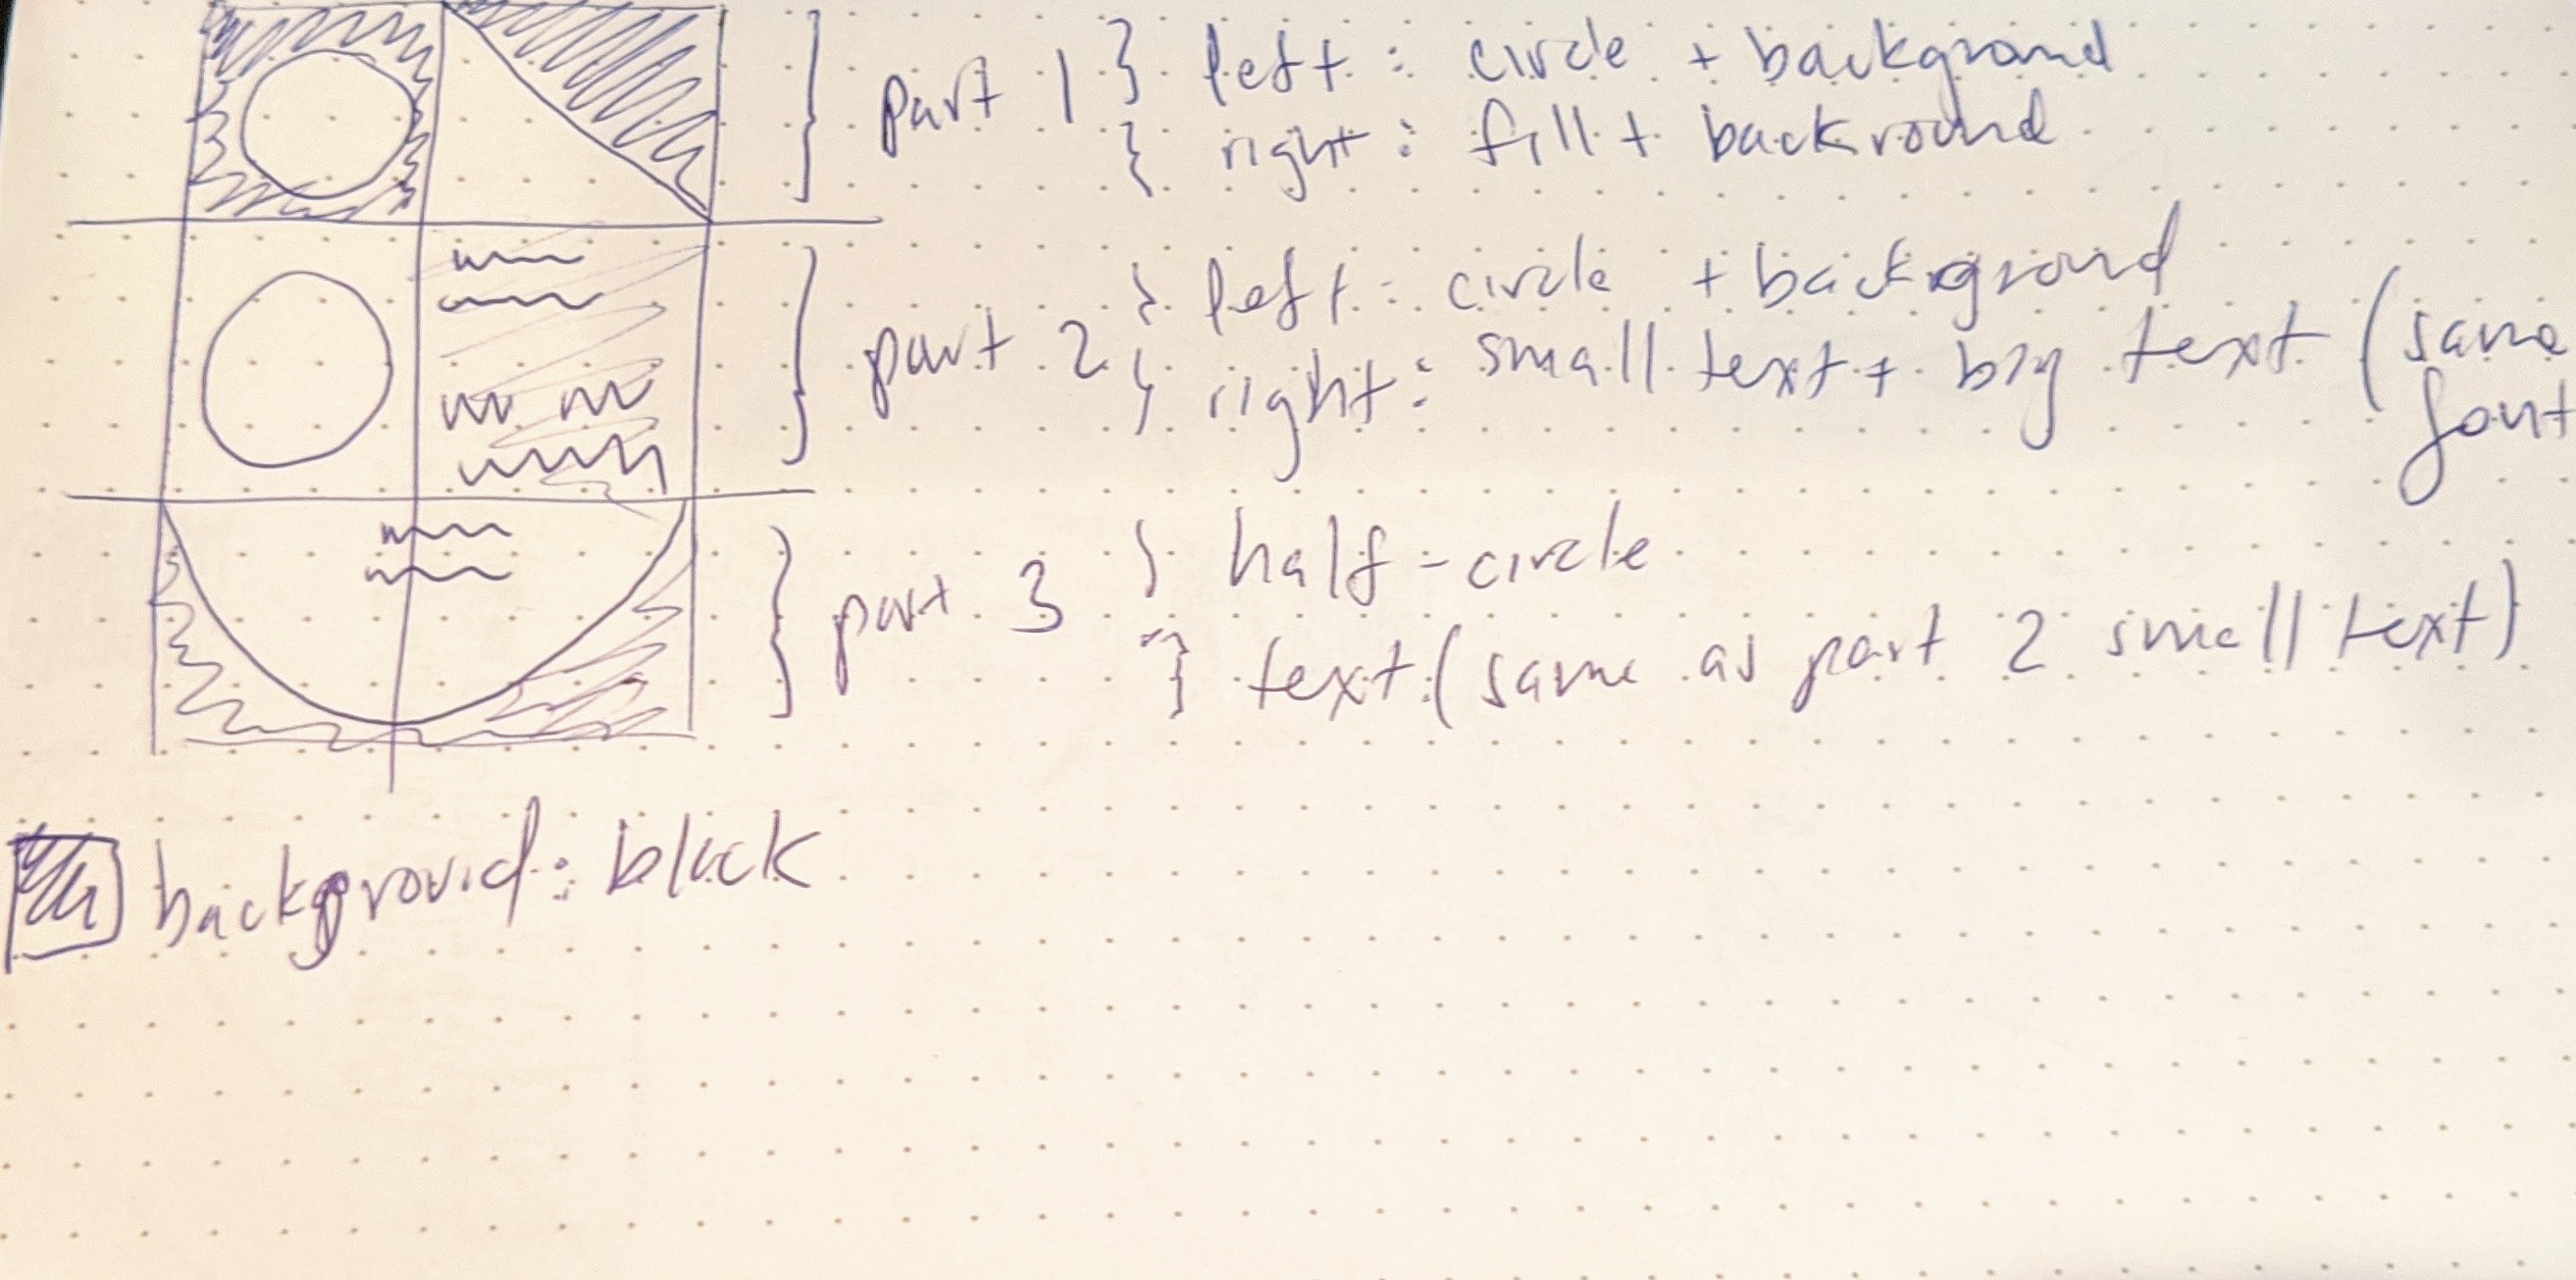 part 1
left : circle + background
right : fill + backround
part 2
left : circle + background
right : small text + big text (same font
part 3
half-circle
text (same as part 2 small text)
background : black